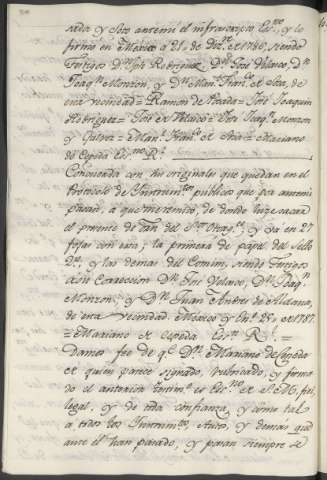 rada y esta ante mi el infrascripto Es.no, y lo
firmó en Mexico a 21, de Diz.re de 1786, siendo
Testigos D.n José Rodriguez, D.n José Velasco, D.n
Joaq.n Monzon, y D.n Man.l Fran.co de Aria, de
esta vecindad = Ramon de Posada = José Joaquin
Rodriguez = José de Velasco = José Joaq.n Monzon
y = Man.l Fran.co de Aria = Mariano
de Cepeda Es.no R.l
Concuerda con su originales que quedan en el
Protocolo de Instrum.tos publicos que por ante mi
pasan, a que me remito, de donde hize sacar
el presente de y va en 27
fojas con esta; la primera de papel del Sello
2.o, y las demas del Comun, siendo Testigos
a su Correccion D.n José Velasco, D.n Joaq.n
Monzon, y D.n Juan Andres de Aldana,
de esta Vecindad. Mexico y En.o 25, de 1787.
= Mariano de Cepeda Es.no R.l =
Damos fee de q.e D.n Mariano de Cepeda
de quien parece signado, rubricado, y firma
do el anterior Testim.o es Es.no de S.M. fiel
legal, y de toda confianza y como tal
a todos los Instrum.tos, Autos, y demas que
ante el han pasado, y pasan siempre se